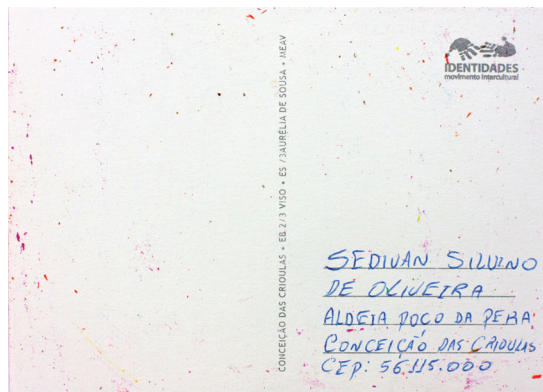 IDENTIDADES
movimento intercultural
CONCEIÇÃO DAS CRIOULAS • EB 2/3 VISO • ES /3AURÉLIA DE SOUSA • MEAV
SEDIVAN SILVINO
DE OLIVEIRA
ALDEIA POÇO DA PERA
CONCEIÇÃO DAS CRIOULAS
CEP: 56.115.000